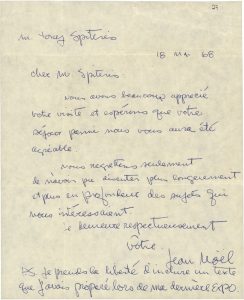 M. Tonay Spiteris
18 Mai 68
cher M. Spiteris
nous avons beaucoup apprecié
votre visite et espérons que votre
séjour parmi nous vous aura été
agréable.
nous regrettons seulement
de n'avoir pu discuter plus longuement
et plus en profondeur des sujets qui
nous intéressaient
je demeure respectueusement
votre.
Jean Noël
PS. Je prends la liberté d'inclure un texte
que j'avais préparé lors de ma dernière EXPO.